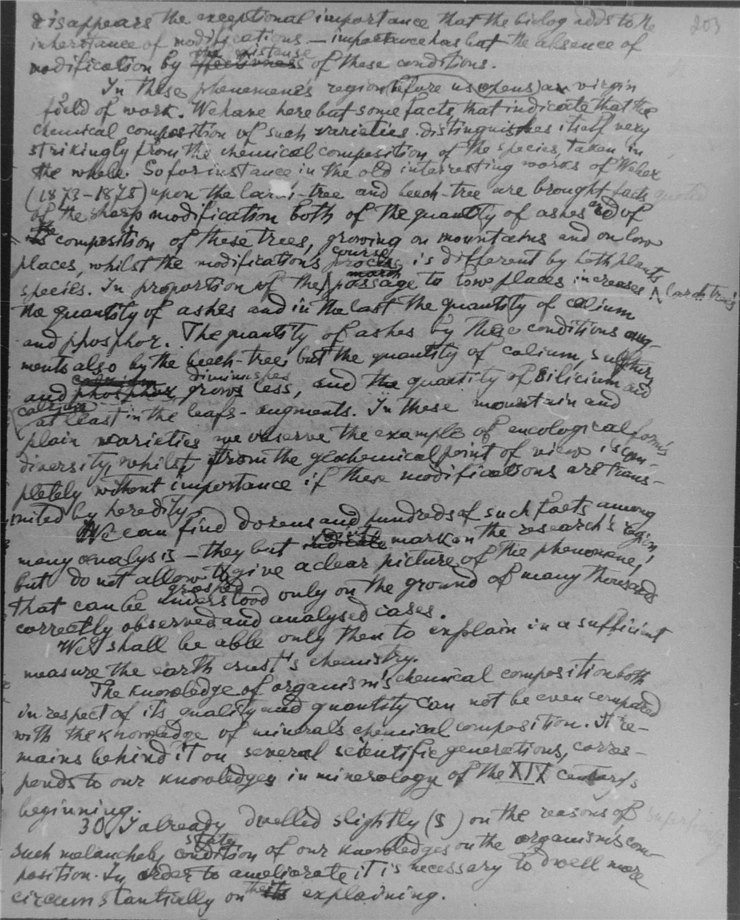 203
disappears the exceptional importance that the biolog adds to the
inheritance of modifications — importance has but the absence of
modification by the existense of these conditions.
In these phenomenes region before us opens a virgin
field of work. We have here but some facts that indicate that the
chemical composition of such varieties distinguishes itself very
strikingly from the chemical composition of the species taken in
the whole. So for instance in the old interresting works of Weber
(1873-1875) upon the lar-i-tree and beech-tree are brought facts
of the sharp modification both of the quantity of ashes and of
the composition of these trees, growing on mountains and on low
places, whilst the modifications course is different by both plants
species. In proportion of the march passage to low places increases larch tree's
the quantity of ashes and in the last the quantity of calium
and phosphor. The quantity of ashes by these conditions aug-
ments also by the beech-tree, but the quantity of calium, sulphur,
and phosphor, diminuspes grows less, and the quantity of silicium and
calcium at least in the leafs - augments. In these mountain and
plain varieties we observe the example of encological form's
diversity whilst from the geochemical point of view is com-
pletely without importance if these modifications are trans-
mited by heredity.
We can find dozens and hundreds of such facts among
many analysis — they but mark on the research's region,
but do not allow to give a clear picture of the phenomene,
that can be grasped understood only on the ground of many thousands
correctly observed and analysed cases.
We shall be able only then to explain in a sufficient
measure the earth crust's chemistry.
The knowledge of organism's chemical composition both
in respect of its quality and quantity can not be even compared
with the knowledge of mineral's chemical composition. It re-
mains behind it on several scientific generations, corres-
pends to our knowledges in minerology of the XIX century's
beginning.
30. I already dwelled slightly (§ ) on the reasons of
such melancholy state condition of our knowledges on the organism's com-
position. In order to ameliorate it is necessary to dwell more
circumstantially on the explaining.